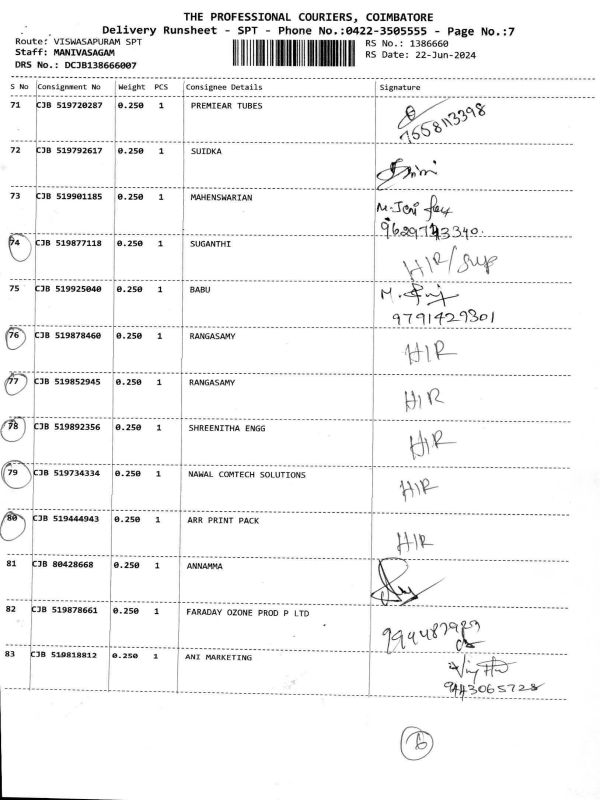 THE PROFESSIONAL COURIERS, COIMBATORE
Delivery Runsheet - SPT - Phone No.:0422-3505555 - Page No.:7
Route: VISWASAPURAM SPT RS No.: 1386660
Staff: MANIVASAGAM RS Date: 22-Jun-2024
DRS No.: DCJB138666007
S No Consignment No Weight PCS Consignee Details Signature
71 CJB 519720287 0.250 1 PREMIEAR TUBES
7658113398
72 CJB 519792617 0.250 1 SUIDKA
73 CJB 519901185 0.250 1 MAHENSWARIAN
74 CJB 519877118 0.250 1 SUGANTHI
HIR/
75 CJB 519925040 0.250 1 BABU M.
9791429301
76 CJB 519878460 0.250 1 RANGASAMY HIR
77 CJB 519852945 0.250 1 RANGASAMY HIR
78 CJB 519892356 0.250 1 SHREENITHA ENGG HIR
79 CJB 519734334 0.250 1 NAWAL COMTECH SOLUTIONS HIR
80 CJB 519444943 0.250 1 ARR PRINT PACK
HIR
81 CJB 80428668 0.250 1 ANNAMMA
82 CJB 519878661 0.250 1 FARADAY OZONE PROD P LTD
83 CJB 519818812 0.250 1 ANI MARKETING
9443065728
6